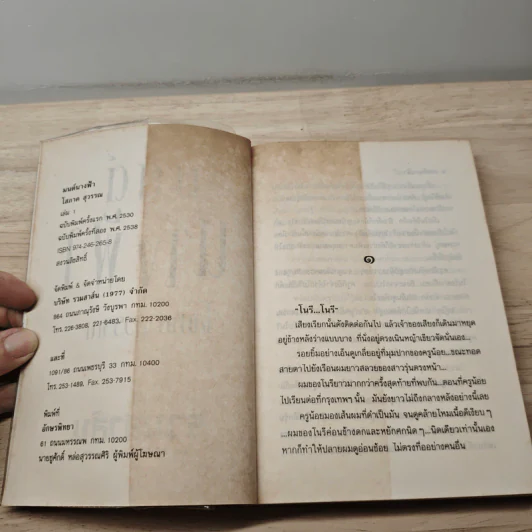 มนต์นางฟ้า
โสภาค สุวรรณ
เล่ม 1
ฉบับพิมพ์ครั้งแรก พ.ศ. 2530
ฉบับพิมพ์ครั้งที่สอง พ.ศ. 2538
ISBN 974-246-265-8
สงวนลิขสิทธิ์
จัดพิมพ์ & จัดจำหน่ายโดย
บริษัท รวมสาส์น (1977) จำกัด
864 ถนนภาณุรังษี วังบูรพา กทม. 10200
โทร. 226-3808, 221-6483, Fax. 222-2036
และที่
1091/86 ถนนเพชรบุรี 33 กทม. 10400
โทร. 253-1489, Fax. 253-7915
พิมพ์ที่
อักษรพิทยา
61 ถนนแพรงนรา กทม. 10200
นายชูศักดิ์ หล่อสุวรรณศิริ ผู้พิมพ์ผู้โฆษณา
๑
"โนรี...โนรี"
เสียงเรียกนั้นดังติดต่อกันไป แล้วเจ้าของเสียงก็เดินมาหยุด
อยู่ข้างหลังร่างแบบบาง ที่นั่งอยู่ตรงเนินหญ้าเขียวขจีนั้นเอง...
รอยยิ้มอย่างเอ็นดูเกลี่ยอยู่ที่มุมปากของครูน้อย...ขณะทอด
สายตาไปยังเรือนผมยาวสลวยของสาวรุ่นตรงหน้า...
ผมของโนรียาวมากกว่าครั้งสุดท้ายที่พบกัน...ตอนที่ครูน้อย
ไปเรียนต่อที่กรุงเทพฯ นั้น มันยังยาวไม่ถึงกลางหลังอย่างนี้เลย
ครูน้อยมองเส้นผมที่ดำเป็นมัน จนดูคล้ายไหมเนื้อดีเงียบ ๆ
...ผมของโนรีค่อนข้างดกและหยักศกนิด ๆ...นิดเดียวเท่านั้นเอง
หากก็ทำให้ปลายผมดูอ่อนช้อย ไม่ตรงทื่ออย่างคนอื่น